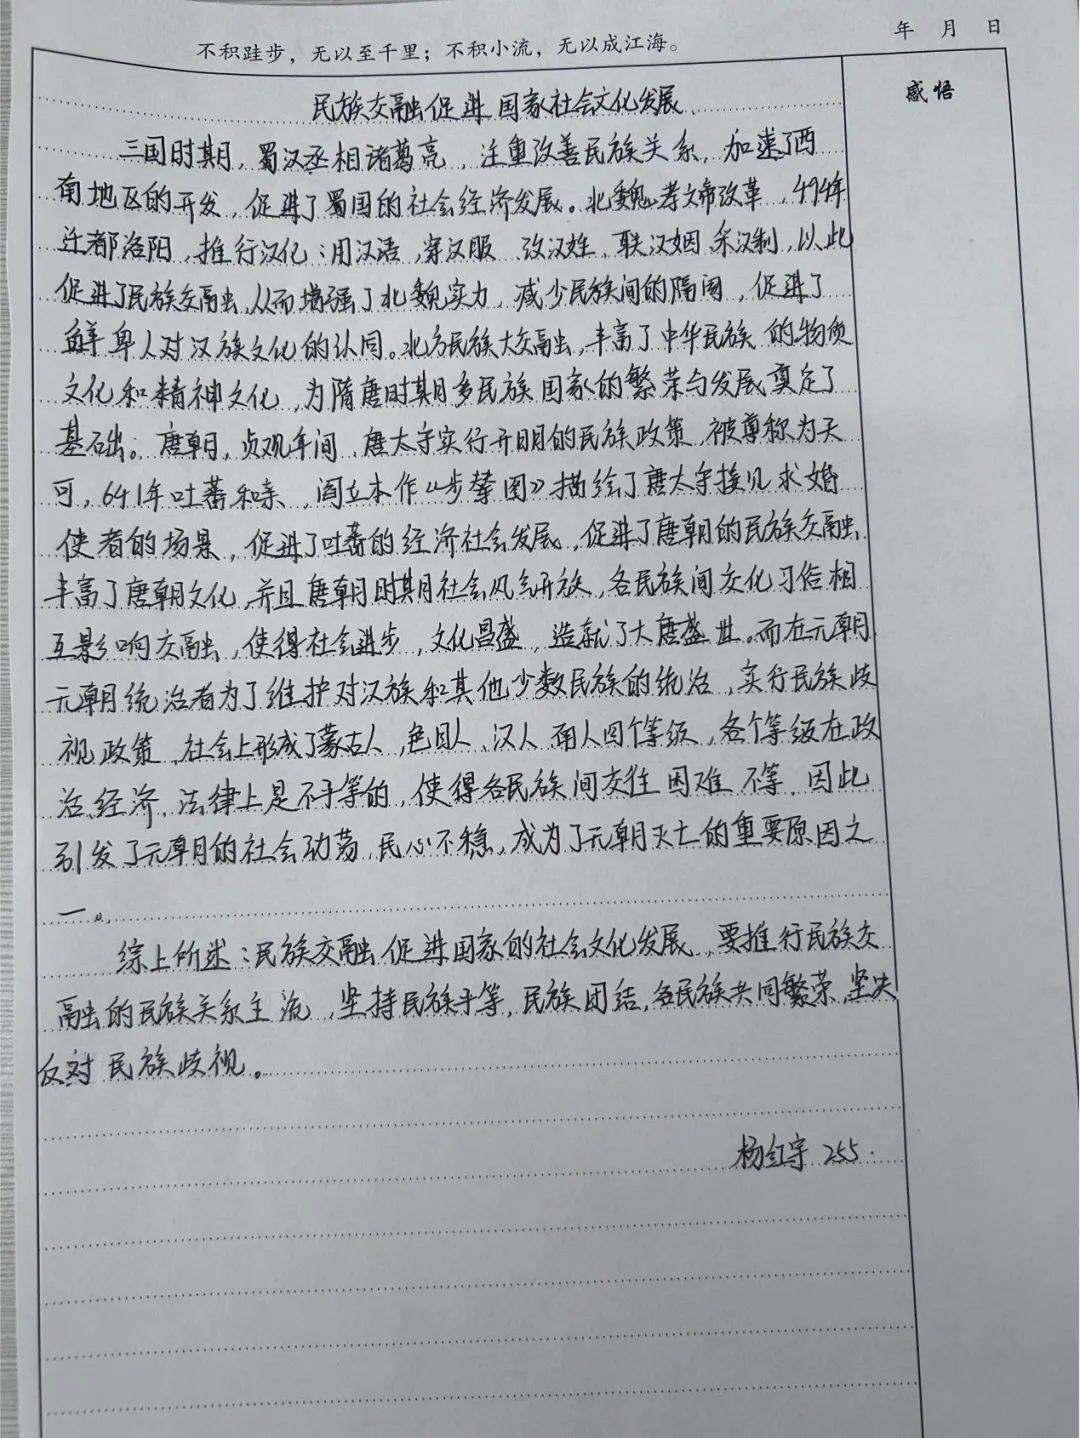 年 月 日
不积跬步，无以至千里；不积小流，无以成江海。
感悟
民族交融促进国家社会文化发展
三国时期，蜀汉丞相诸葛亮，注重改善民族关系，加速了西
南地区的开发，促进了蜀国的社会经济发展。北魏孝文帝改革，494年
迁都洛阳，推行汉化：用汉语，穿汉服、改汉姓、联汉姻、采汉制，以此
促进了民族交融，从而增强了北魏实力，减少民族间的隔阂，促进了
鲜卑人对汉族文化的认同。北方民族大交融，丰富了中华民族的物质
文化和精神文化，为隋唐时期多民族国家的繁荣与发展奠定了
基础。唐朝，贞观年间，唐太宗实行开明的民族政策，被尊称为天
可，641年吐蕃和亲、阎立本作《步辇图》描绘了唐太宗接见求婚
使者的场景，促进了吐蕃的经济社会发展，促进了唐朝的民族交融，
丰富了唐朝文化，并且唐朝时期社会风气开放，各民族间文化习俗相
互影响交融，使得社会进步，文化昌盛，造就了大唐盛世。而在元朝
元朝统治者为了维护对汉族和其他少数民族的统治，实行民族歧
视政策，社会上形成了蒙古人，色目人、汉人南人四个等级，各个等级在政
治经济、法律上是不平等的，使得各民族间交往困难不等，因此
引发了元朝的社会动荡，民心不稳，成为了元朝灭亡的重要原因之
一。
综上所述：民族交融促进国家的社会文化发展，要推行民族交
融的民族关系主流，坚持民族平等，民族团结，各民族共同繁荣，坚决
反对民族歧视。
杨红宇 255.